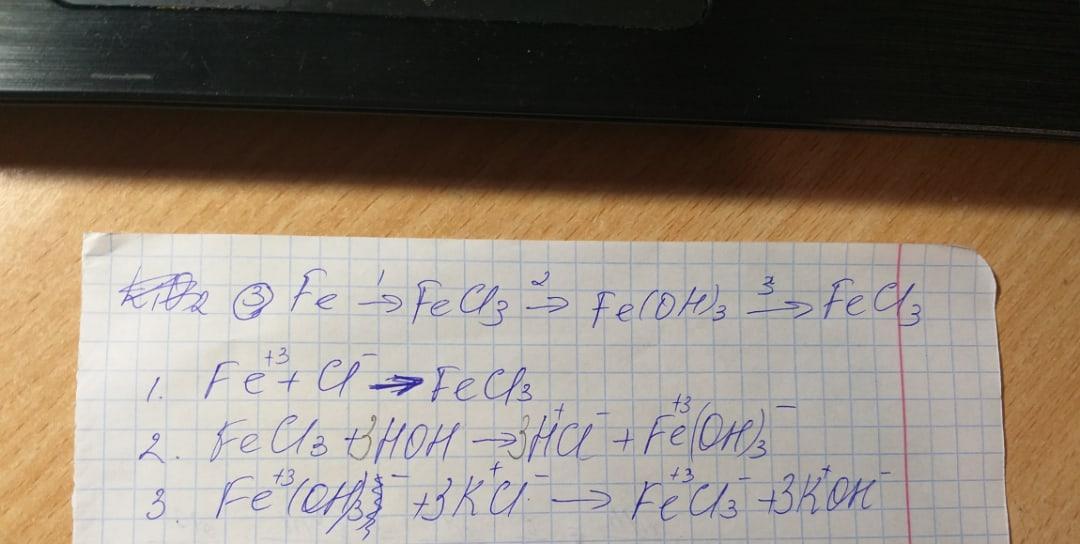 ③ Fe →¹ FeCl₃ →² Fe(OH)₃ →³ FeCl₃
1. Fe⁺³ + Cl⁻ → FeCl₃
2. FeCl₃ + 3HOH → 3H⁺Cl⁻ + Fe⁺³(OH)₃⁻
3. Fe⁺³(OH)₃⁻ + 3K⁺Cl⁻ → Fe⁺³Cl₃⁻ + 3K⁺OH⁻